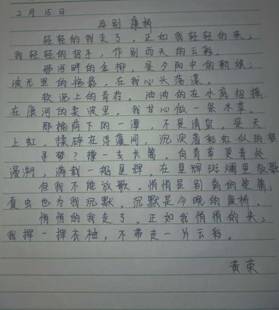 2月15日
再别康桥
轻轻的我走了,正如我轻轻的来,
我轻轻的招手,作别西天的云彩。
那河畔的金柳,是夕阳中的新娘,
波光里的艳影,在我心头荡漾。
软泥上的青荇,油油的在水底招摇
在康河的柔波里,我甘心做一条水草。
那榆荫下的一潭,不是清泉,是天
上虹,揉碎在浮藻间,沉淀着彩虹似的梦
寻梦?撑一支长篙,向青草更青处
漫溯,满载一船星辉,在星辉斑斓里放歌
但我不能放歌,悄悄是别离的笙箫,
夏虫也为我沉默,沉默是今晚的康桥。
悄悄的我走了,正如我悄悄的来,
我挥一挥衣袖,不带走一片云彩。
黄荣